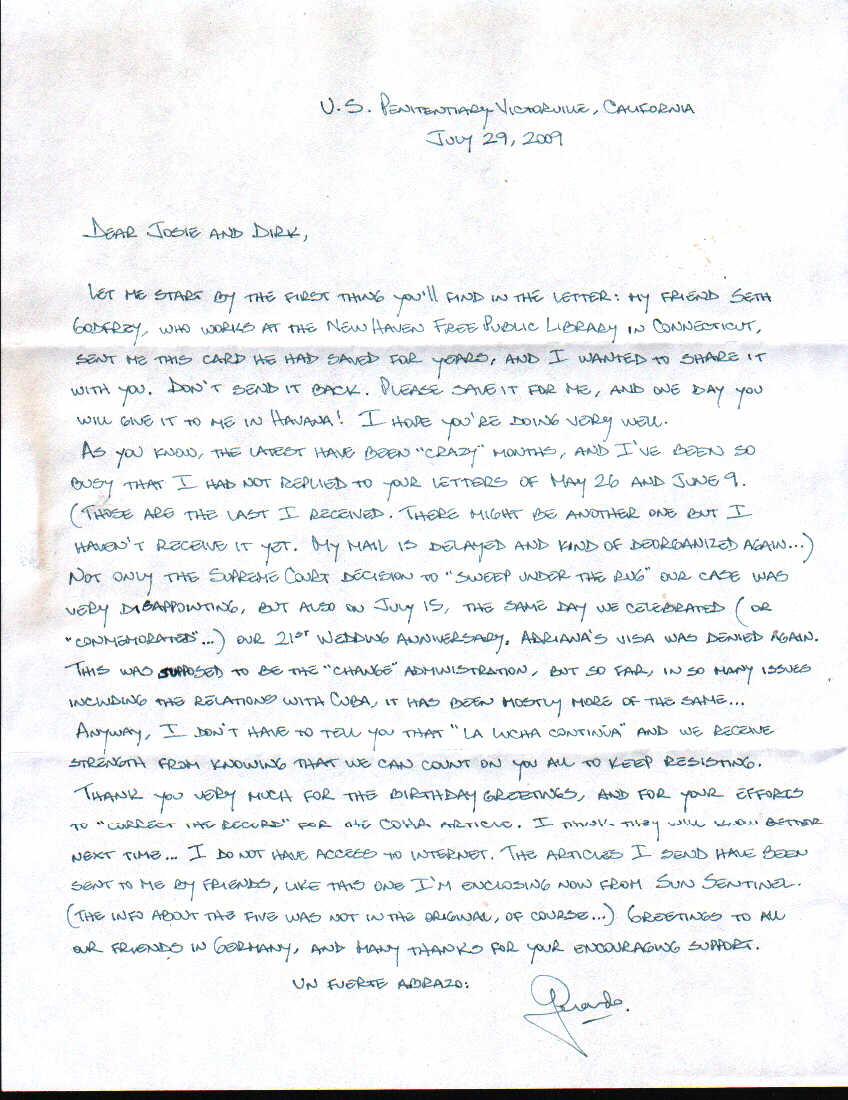 U.S. PENITENTIARY VICTORVILLE, CALIFORNIA
JULY 29, 2009
DEAR JOSIE AND DIRK,
LET ME START BY THE FIRST THING YOU'LL FIND IN THE LETTER: MY FRIEND SETH
GODFREY, WHO WORKS AT THE NEW HAVEN FREE PUBLIC LIBRARY IN CONNECTICUT,
SENT ME THIS CARD HE HAD SAVED FOR YEARS, AND I WANTED TO SHARE IT
WITH YOU. DON'T SEND IT BACK. PLEASE SAVE IT FOR ME, AND ONE DAY YOU
WILL GIVE IT TO ME IN HAVANA! I HOPE YOU'RE DOING VERY WELL.
AS YOU KNOW, THE LATEST HAVE BEEN "CRAZY" MONTHS, AND I'VE BEEN SO
BUSY THAT I HAD NOT REPLIED TO YOUR LETTERS OF MAY 26 AND JUNE 9.
(THOSE ARE THE LAST I RECEIVED. THERE MIGHT BE ANOTHER ONE BUT I
HAVEN'T RECEIVE IT YET. MY MAIL IS DELAYED AND KIND OF DEORGANIZED AGAIN...)
NOT ONLY THE SUPREME COURT DECISION TO "SWEEP UNDER THE RUG" OUR CASE WAS
VERY DISAPPOINTING, BUT ALSO ON JULY 15, THE SAME DAY WE CELEBRATED (OR
"CONMEMORATED"...) OUR 21ST WEDDING ANNIVERSARY. ADRIANA'S VISA WAS DENIED AGAIN.
THIS WAS SUPPOSED TO BE THE "CHANGE" ADMINISTRATION, BUT SO FAR, IN SO MANY ISSUES
INCLUDING THE RELATIONS WITH CUBA, IT HAS BEEN MOSTLY MORE OF THE SAME...
ANYWAY, I DON'T HAVE TO TELL YOU THAT "LA LUCHA CONTINÚA" AND WE RECEIVE
STRENGTH FROM KNOWING THAT WE CAN COUNT ON YOU ALL TO KEEP RESISTING.
THANK YOU VERY MUCH FOR THE BIRTHDAY GREETINGS, AND FOR YOUR EFFORTS
TO "CORRECT THE RECORD" FOR THE COHA ARTICLE. I THINK THEY WILL KNOW BETTER
NEXT TIME... I DO NOT HAVE ACCESS TO INTERNET. THE ARTICLES I SEND HAVE BEEN
SENT TO ME BY FRIENDS, LIKE THIS ONE I'M ENCLOSING NOW FROM SUN SENTINEL.
(THE INFO ABOUT THE FIVE WAS NOT IN THE ORIGINAL, OF COURSE...) GREETINGS TO ALL
OUR FRIENDS IN GERMANY, AND MANY THANKS FOR YOUR ENCOURAGING SUPPORT.
UN FUERTE ABRAZO:
Gerardo.